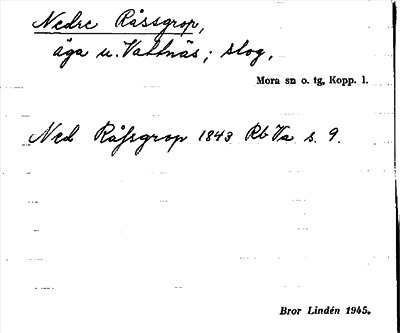 Nedre Råssgrop,
äga u. Vattnäs; skog,
Mora sn o. tg, Kopp. l.
Ned Råssgrop 1843 Rb Va s. 9.
Bror Lindén 1945.